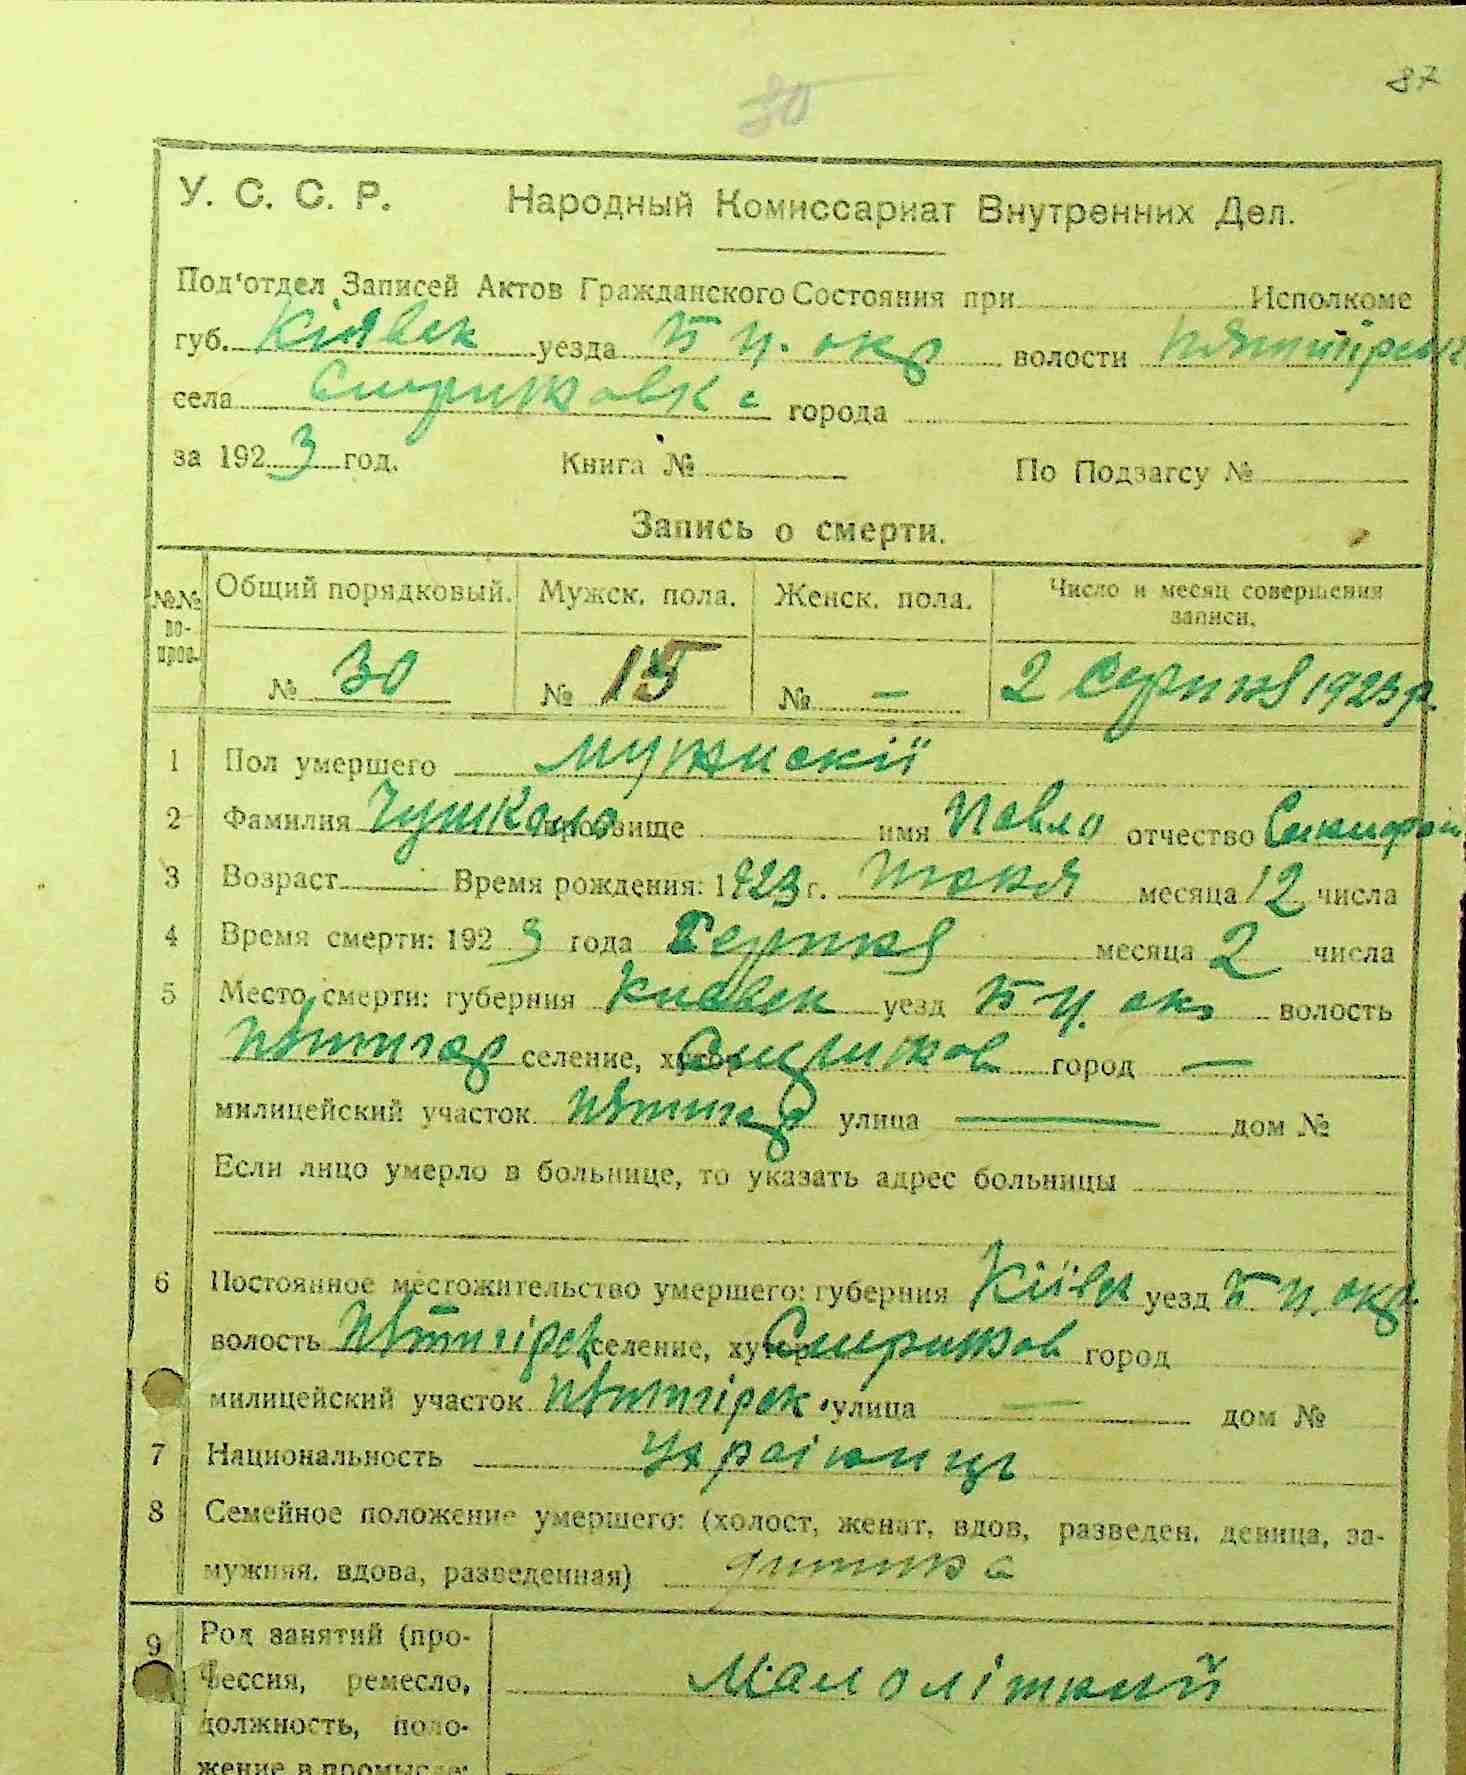 87
30
У. С. С. Р. Народный Комиссариат Внутренних Дел.
Под'отдел Записей Актов Гражданского Состояния при Исполкоме
губ. Київск уезда Б Ц. окр волости
села города
за 1923 год. Книга № По Подзагсу №
Запись о смерти.
№№ во-прос. Общий порядковый. Мужск. пола. Женск. пола. Число и месяц совершения записи.
№ 30 № 15 № — 2 Серпня 1923 р.
1 Пол умершего мужискії
2 Фамилия прозвище имя Павло отчество
3 Возраст Время рождения: 1923 г. месяца 12 числа
4 Время смерти: 1923 года Серпня месяца 2 числа
5 Место смерти: губерния Києвск уезд Б Ц. окр волость
Пятигор селение, хутор город —
милицейский участок Пятигор улица — дом №
Если лицо умерло в больнице, то указать адрес больницы
6 Постоянное местожительство умершего: губерния Київ уезд Б Ц. окр
волость Пятигірск селение, хутор город
милицейский участок Пятигірск улица — дом №
7 Национальность Українець
8 Семейное положение умершего: (холост, женат, вдов, разведен, девица, за-
мужняя, вдова, разведенная) дитина
9 Род занятий (про-
фессия, ремесло, Малолітний
должность, поло-
жение в промысле: